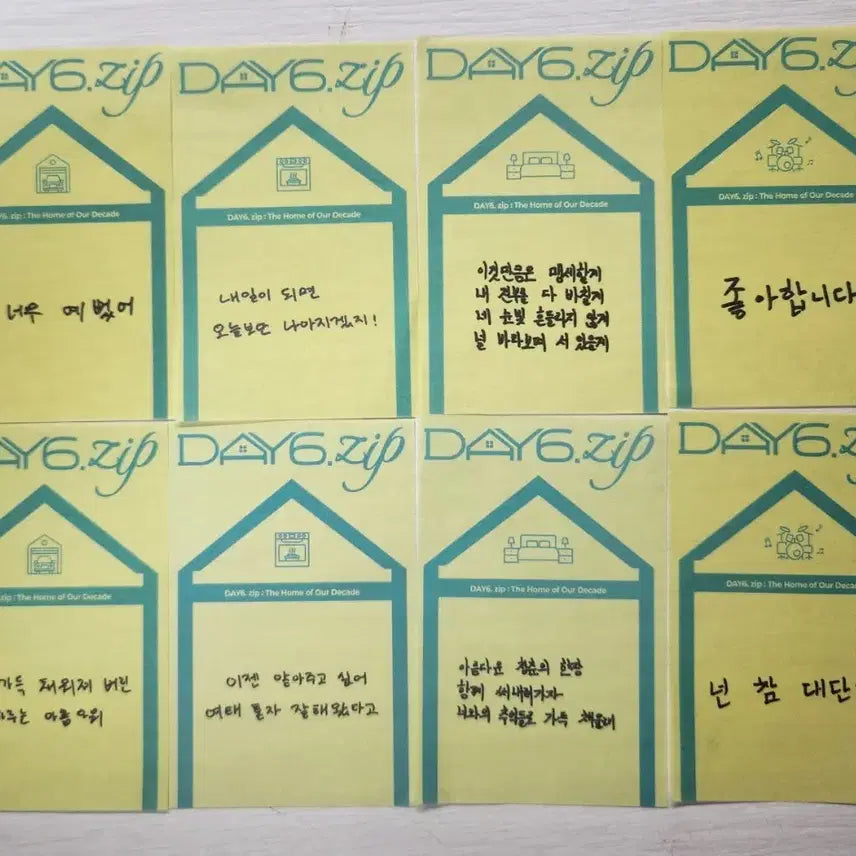 DAY6.zip
DAY6. zip : The Home of Our Decade
너무 예뻤어
DAY6.zip
DAY6. zip : The Home of Our Decade
내일이 되면
오늘보단 나아지겠지!
DAY6.zip
DAY6. zip : The Home of Our Decade
이것만큼은 맹세할게
내 전부를 다 바칠게
네 눈빛 흔들리지 않게
널 바라보며 서 있을게
DAY6.zip
DAY6. zip : The Home of Our Decade
좋아합니다
AY6.zip
. zip : The Home of Our Decade
가득 채워져 버린
DAY6.zip
DAY6. zip : The Home of Our Decade
이젠 알아주고 싶어
여태 혼자 잘해왔다고
DAY6.zip
DAY6. zip : The Home of Our Decade
아름다운 청춘의 한장
함께 써내려가자
너와의 추억들로 가득 채울래
DAY6.zip
DAY6. zip : The Home of Our Decade
넌 참 대단